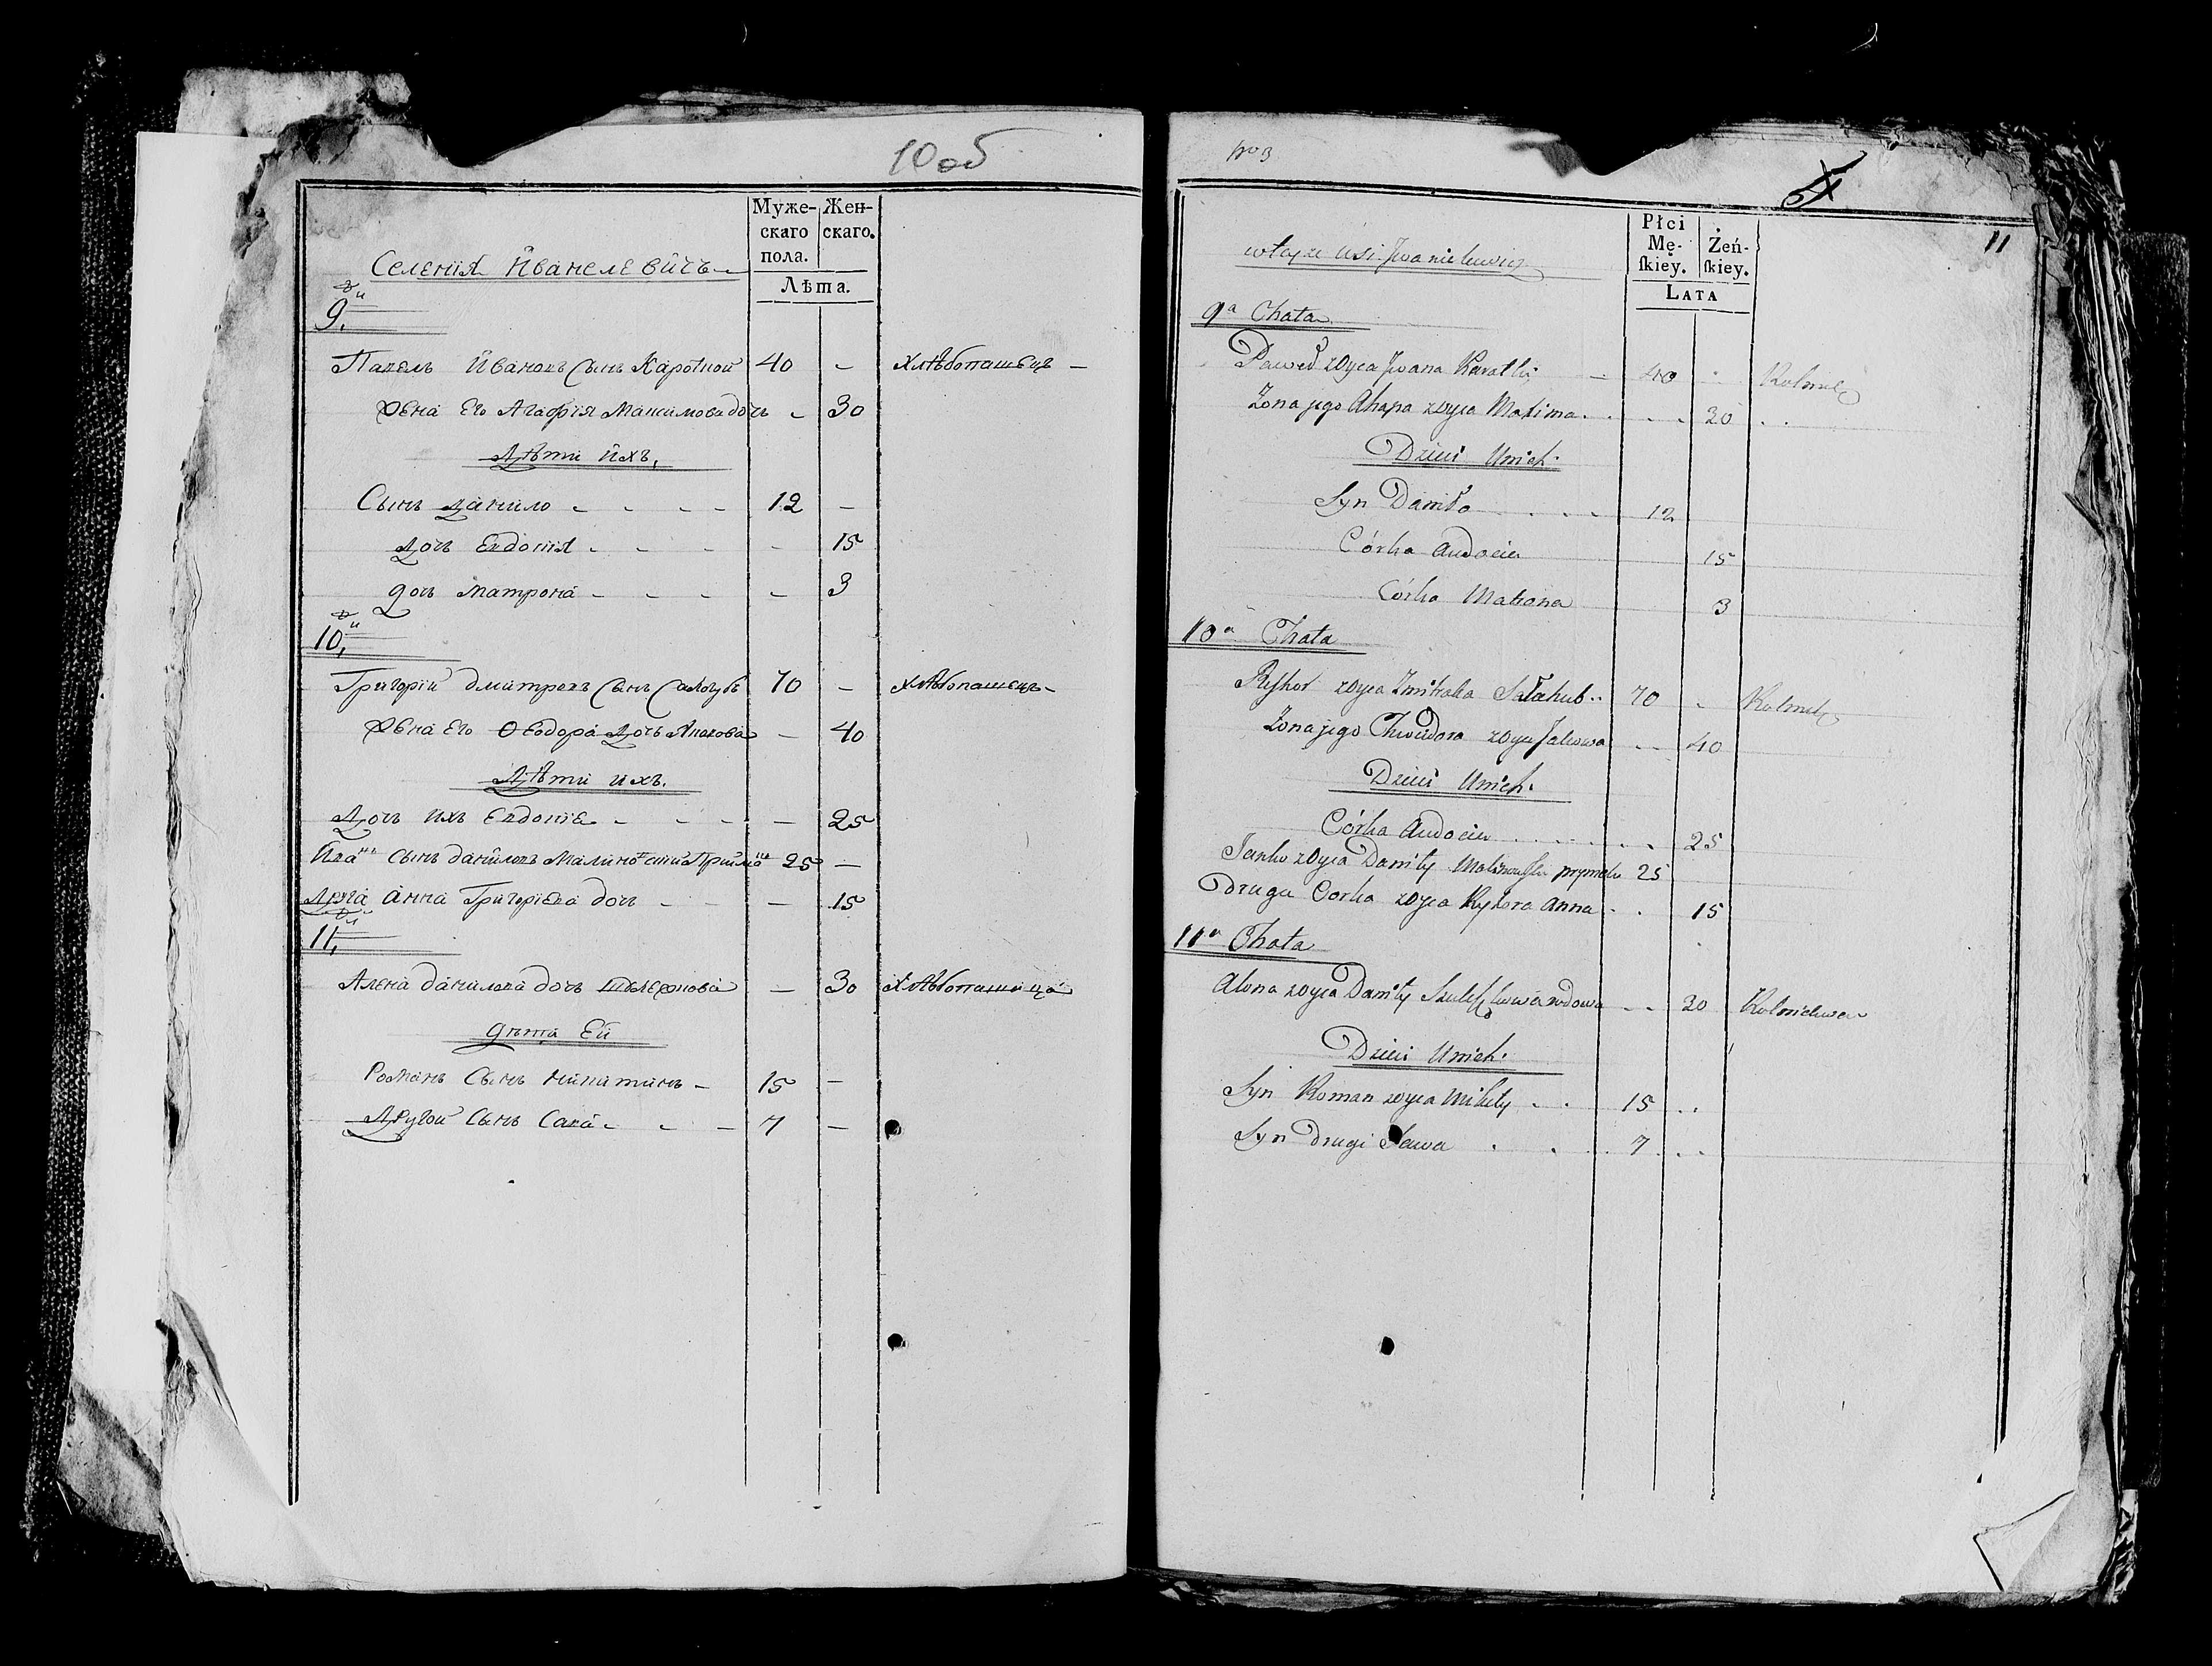 10 об
Муже-
скаго
пола.
Жен-
скаго.
Селения Иванелевичъ
Лѣта.
9.
Павелъ Ивановъ Сынъ Кароткой 40 - Хлѣбопашецъ -
Жена Его Агафія Максимова дочь - 30
Дѣти ихъ,
Сынъ Данило - - - - 12 -
Дочь Евдокія - - - - - 15
дочь Матрона - - - - - 3
10,
Григорій Дмитревъ Сынъ Салогубъ 70 - Хлѣбопашецъ -
Жена Его Ѳеодора Дочь Якакова - 40
Дѣти ихъ.
Дочь ихъ Евдокіе - - - - - 25
Ива нъ Сынъ Данйловъ Малиновскій Прийма 25 -
Друга Анна Григорієва дочь - - - 15
11,
Алена Данилова дочь - 30 Хлѣбопашица
дѣти Ей
Романъ Сынъ Никитинъ - 15 -
Другой Сынъ Сава - - - 7 -
No 3
11
Płci
Mę-
ſkiey.
Żeń-
ſkiey.
wteyze wsi Iwanielewicz
LATA
9a Chata
Paweł zoyca Jwana Karotki - 40 - Rolnik
Zona jego Ahapa zoyca Maxima . . . . 30 . .
Dzieci Unich.
Syn Daniło . . . . 12
Córka Audocia 15
Córka Matrona 3
10a Chata
Ryhor zoyca Zmitraka Sałahub .. 70 - Rolnik
Zona jego Chwiedora zoyca Jakowa . . 40
Dzieci Unich.
Córka Audocia . . . . . . . 25
Janko zoyca Daniły Malinowski prymak 25
Druga Corka zoyca Ryhora Anna . . 15
11a Chata
Alona zoyca Daniły wdowa . . 30 Rolniczka
Dzieci Unich.
Syn Roman zoyca Mikity . . 15 . .
Syn Drugi Sawa . . . 7 . . .